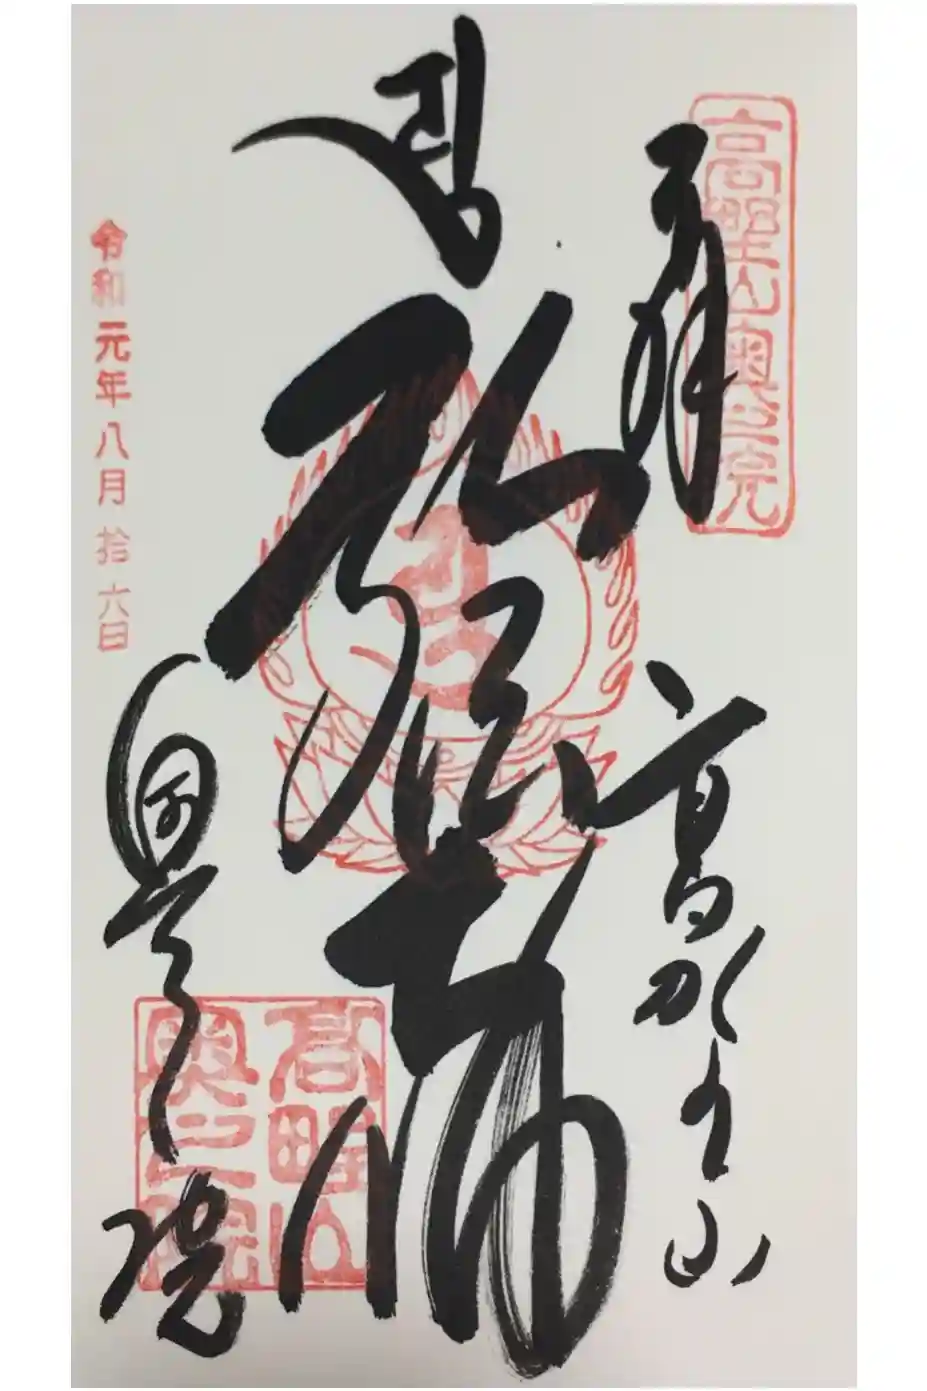 高野山奥之院
高野山
弘法大師
高野山
奥之院
奥之院
令和元年八月拾六日